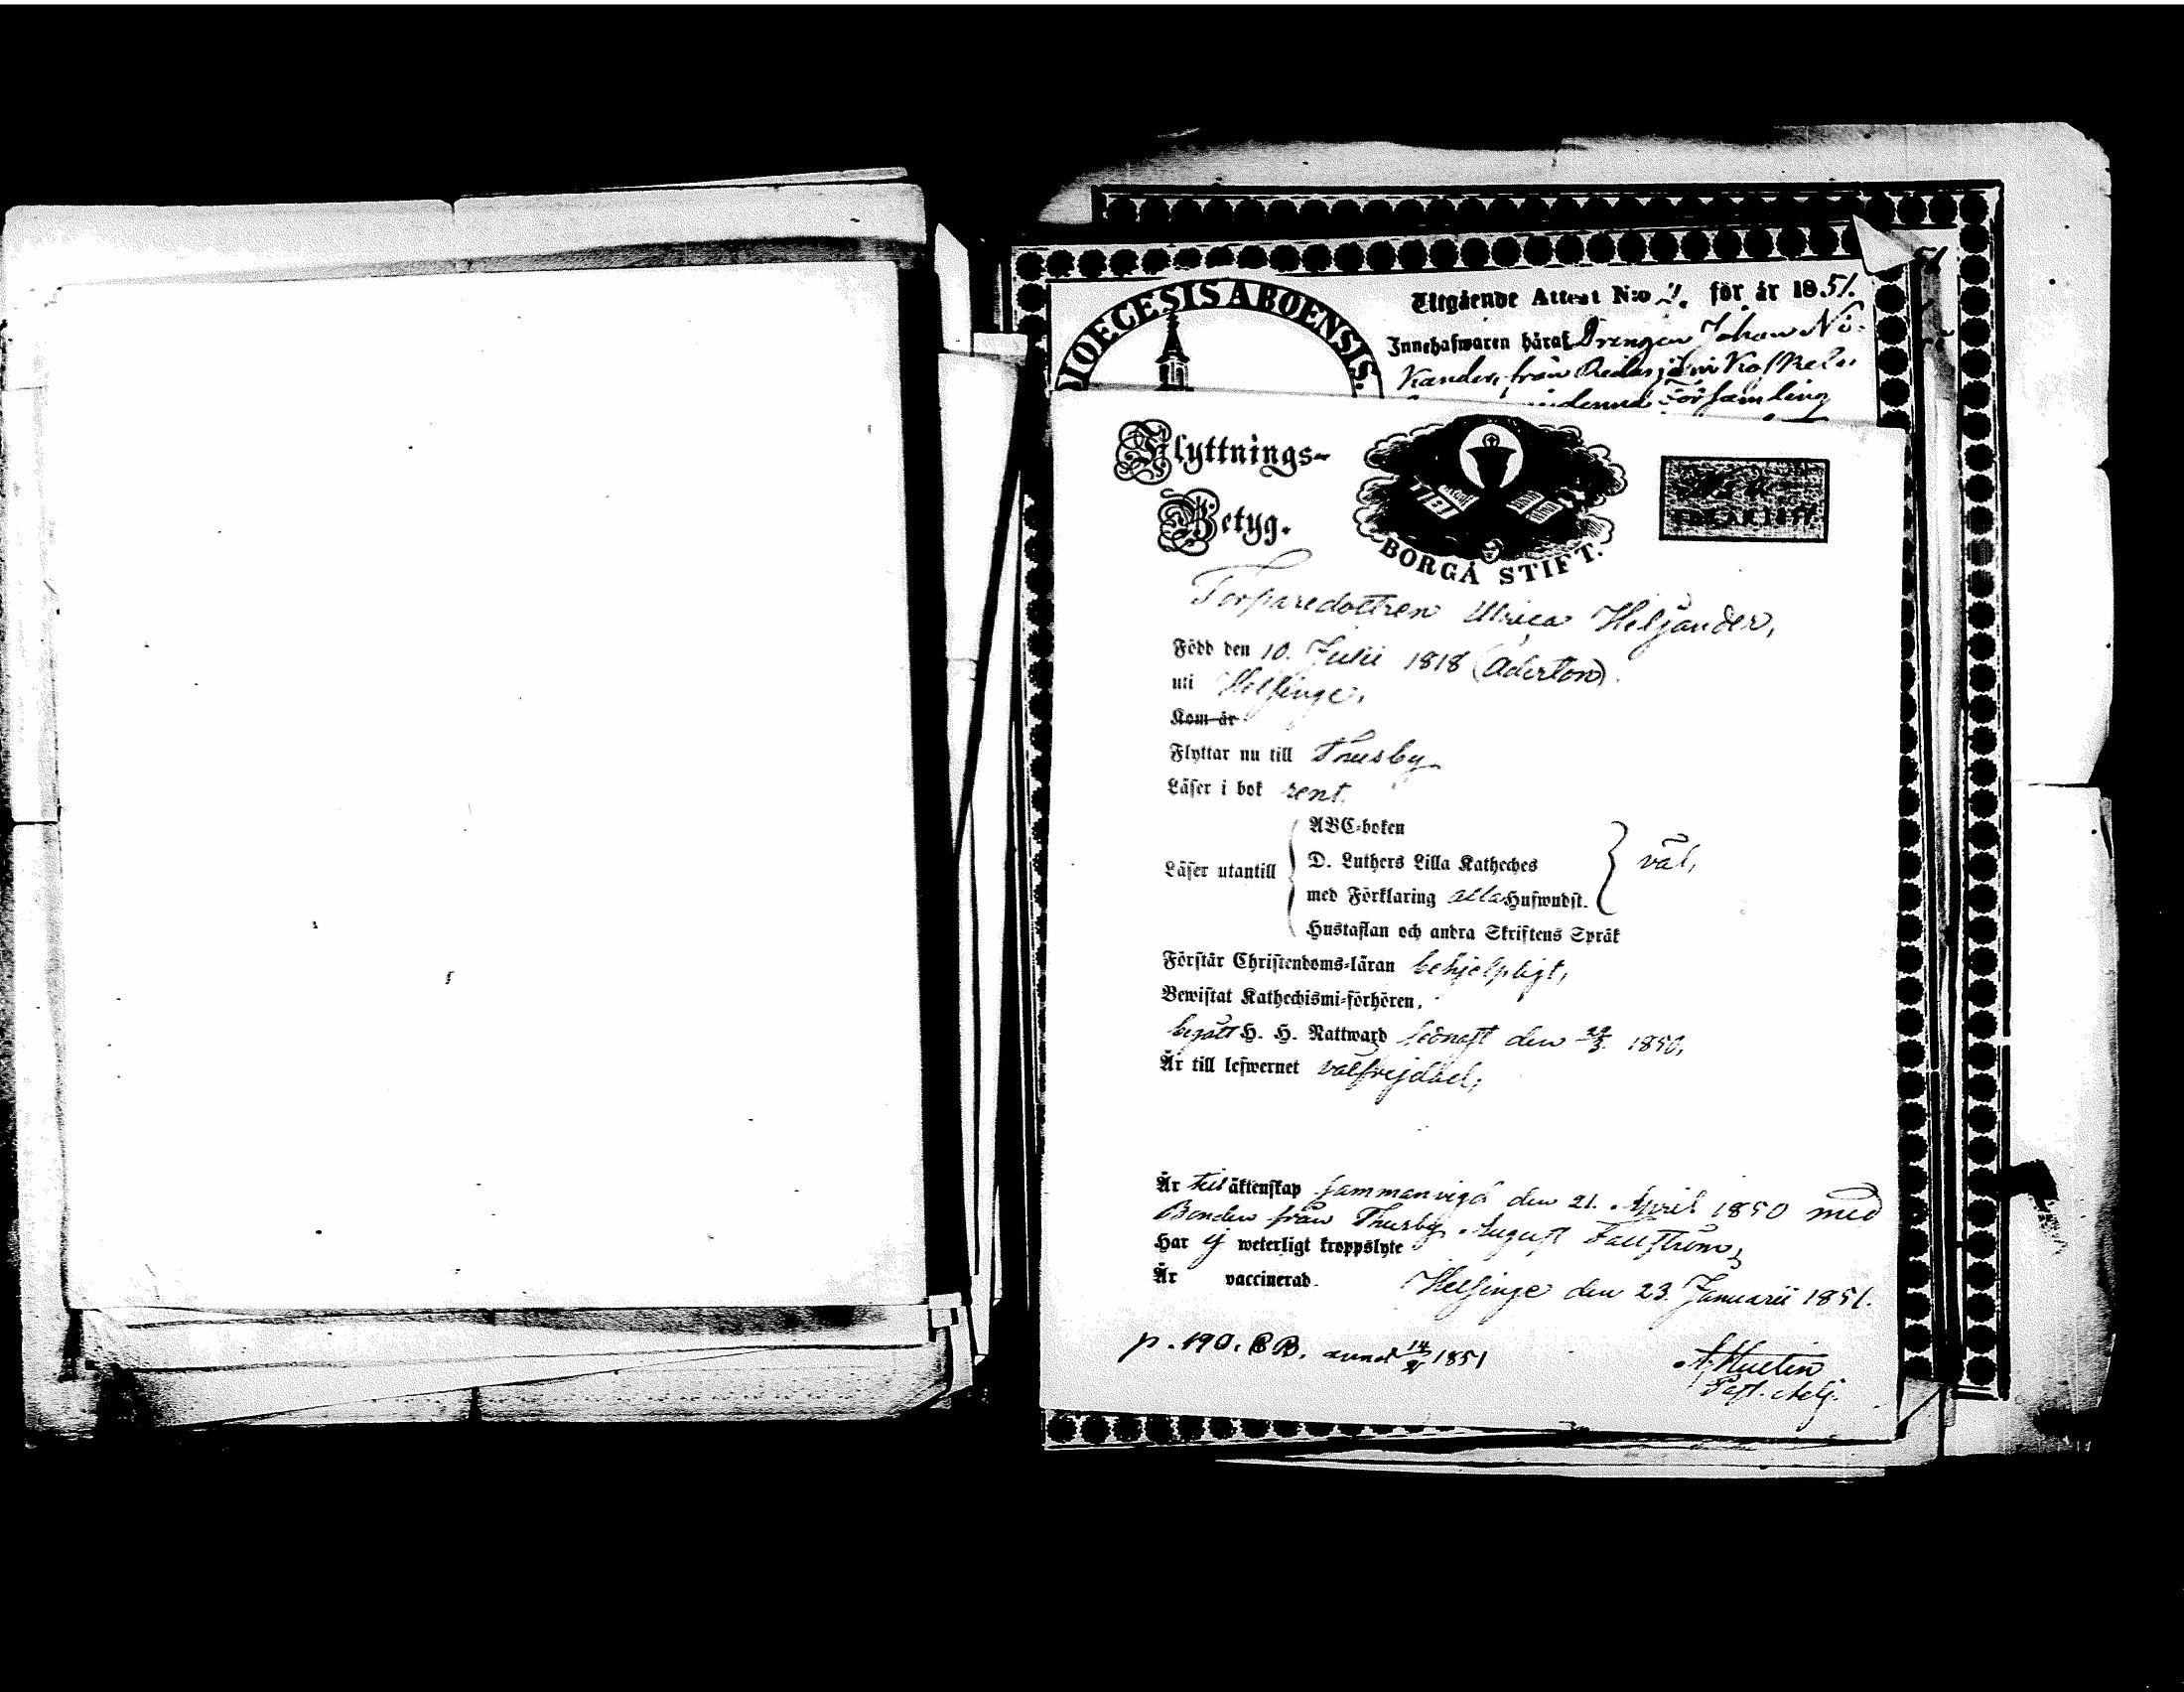 DIOECESIS ABOENSIS.
Utgående Attest N:o 2. för år 1851.
Innehafwaren häraf Drengen Johan Ni-
kander, från
Församling
Flyttnings-
Betyg.
BORGÅ STIFT.
FÖR ÅR 1851
Torparedottren Ulrica Heljander,
Född den 10. Julii 1818 (Aderton)
uti Helsinge,
Kom år
Flyttar nu till Thusby
Läser i bok rent.
Läser utantill
ABC-boken
D. Luthers Lilla Katheches
med Förklaring alla Hufwudst.
väl,
Hustaflan och andra Skriftens Språk
Förstår Christendoms-läran behjelpligt,
Bewistat Kathechismi-förhören,
begått H. H. Nattward sednast den 1850,
Är till lefwernet välfrejdad,
Är till äktenskap sammanvigd den 21. April 1850 med
Bonden från Thusby August Fallström,
Har ej weterligt kroppslyte
Är vaccinerad.
Helsinge den 23. Januarii 1851.
p. 190. BB. 1851
Past. Adj.